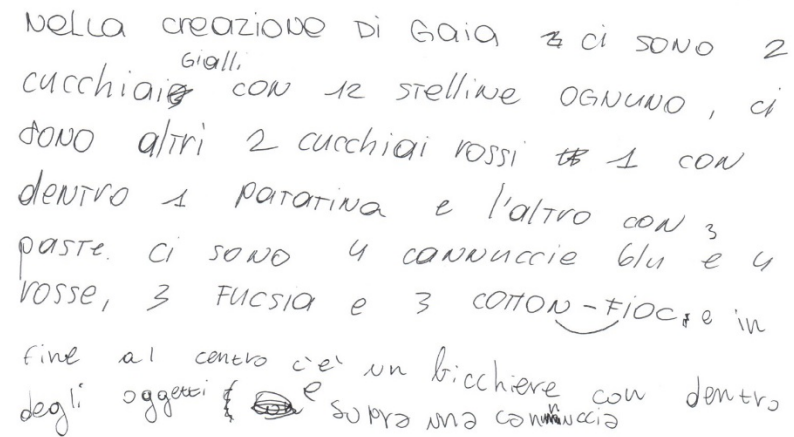 Nella creazione di Gaia ci sono 2
cucchiai gialli con 12 stelline ognuno, ci
sono altri 2 cucchiai rossi 1 con
dentro 1 patatina e l'altro con 3
paste. ci sono 4 cannuccie blu e 4
rosse, 3 fucsia e 3 cotton-fioc, e in
fine al centro c'è un bicchiere con dentro
degli oggetti e sopra una cannuccia